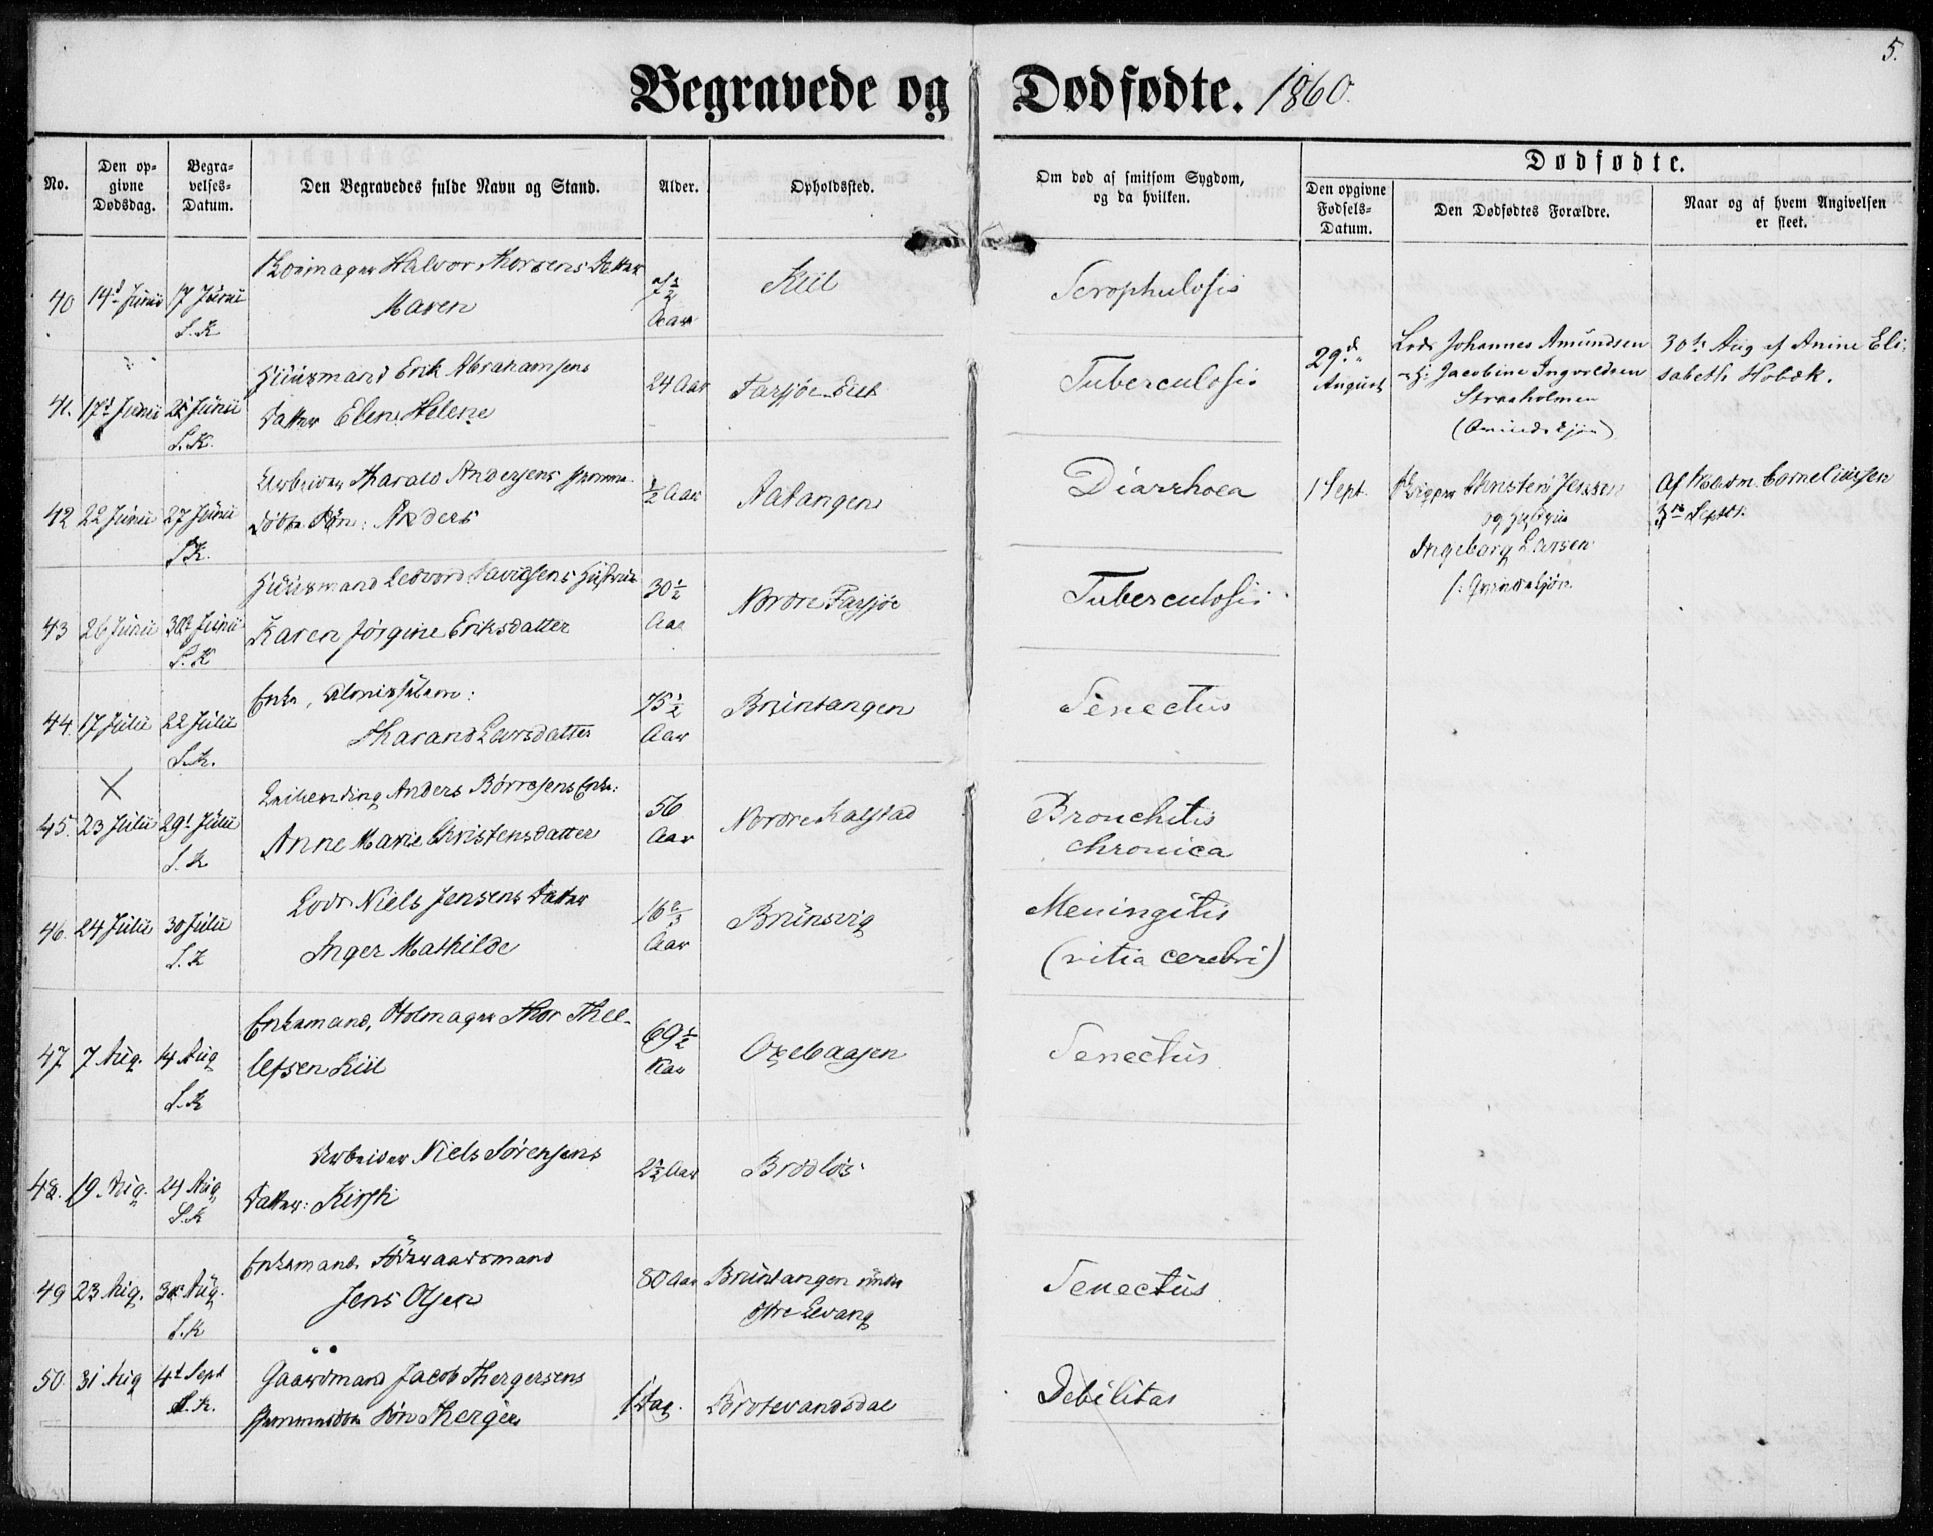 5.
Begravede og Dødfødte. 1860.
No.
Den op-
givne
Dødsdag.
Begra-
velses-
Datum.
Den Begravedes fulde Navn og Stand.
Alder.
Opholdssted.
Om død af smitsom Sygdom,
og da hvilken.
Dødfødte.
Den opgivne
Fødsels-
Datum.
Den Dødfødtes Forældre.
Naar og af hvem Angivelsen
er skeet.
40 14d Junii 17 Junii Halvor Thorsens Datter 7½ Kiil Scrophulosis
S. K Maren Aar
41. 17d Junii 25 Junii Huusmand Erik Abrahamsens 24 Aar Farsjøe Eiet Tuberculosis
S. K. Datter Elen Helene
29d
August
Lods Johannes Amundsen
Jacobine Ingvoldsen
Straaholmen
30te Aug af Anine Eli-
sabeth Hobæk.
42 22 Junii 27 Junii Arbeider Harald Andersens hjemme- ½ Aar Aatangen Diarrhoea
S K. døbte Søn: Anders
1 Sept.
Christen Jensen
og
Ingeborg Larsen
Af Corneliussen
3die Septbr.
43 26 Junii 30 Junii Huusmand Ledvord Davidsens Hustrue 30½ Nordre Farsjøe Tuberculosis
S. K Karen Jørgine Eriksdatter Aar
44. 17 Julii 22 Julii Enke, 75½ Bruntangen Senectus
S. K. Larsdatter Aar
45. 23 Julii 29d Julii Anders Børresens Enke: 56 Nordre Kalstad Bronchitis
S. K Anne Marie Christensdatter Aar chronica
46. 24 Julii 30 Julii Lods Niels Jensens Datter 16⅔ Brunsvig Meningitis
S. K Inger Mathilde Aar (vitia cerebri)
47. 7 Aug. 14 Aug Enkemand, Thor Thel- 69½ Oxebaasen Senectus
S. K lefsen Kiil Aar
48. 19 Aug. 24 Aug Arbeider Niels Sørensens 2½ Aar Brødløs
S. K Datter: Kirsti
49 23 Aug. 30 Aug. Enkemand Føderaadsmand 80 Aar Bruntangen under Senectus
S. K Jens Olsen østre Levang
50. 31 Aug 4d Sept Gaardmand Jacob Thergersens 1 Dag. Brotevandsdal Debilitas
S. K. hjemmedøbte Søn Therger